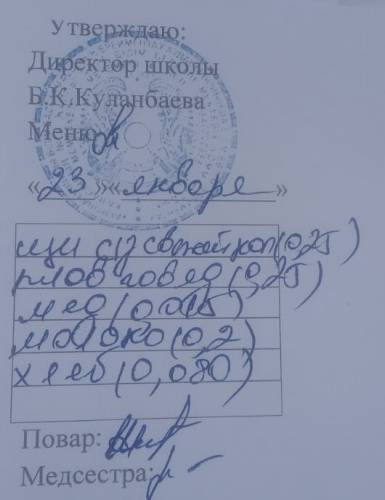 Утверждаю:
Директор школы
Б.К.Куланбаева
Меню
«23»«января»
щи су свежей кап(0,25)
плов говяд(0,25)
мед(0.015)
молоко(0,2)
хлеб(0,080)
Повар:
Медсестра: